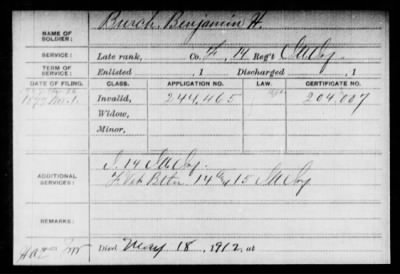 NAME OF SOLDIER: Burch, Benjamin H.
SERVICE: Late rank, Co. F, 14 Reg't Ill Inf
TERM OF SERVICE: Enlisted , 1 Discharged , 1
DATE OF FILING. CLASS. APPLICATION NO. LAW. CERTIFICATE NO.
1877 Invalid, 244,465 204,007
Widow,
Minor,
ADDITIONAL SERVICES: 14 Ill Inf
F Vet Battn 14 & 15 Ill Inf
REMARKS:
Died May 18, 1912, at